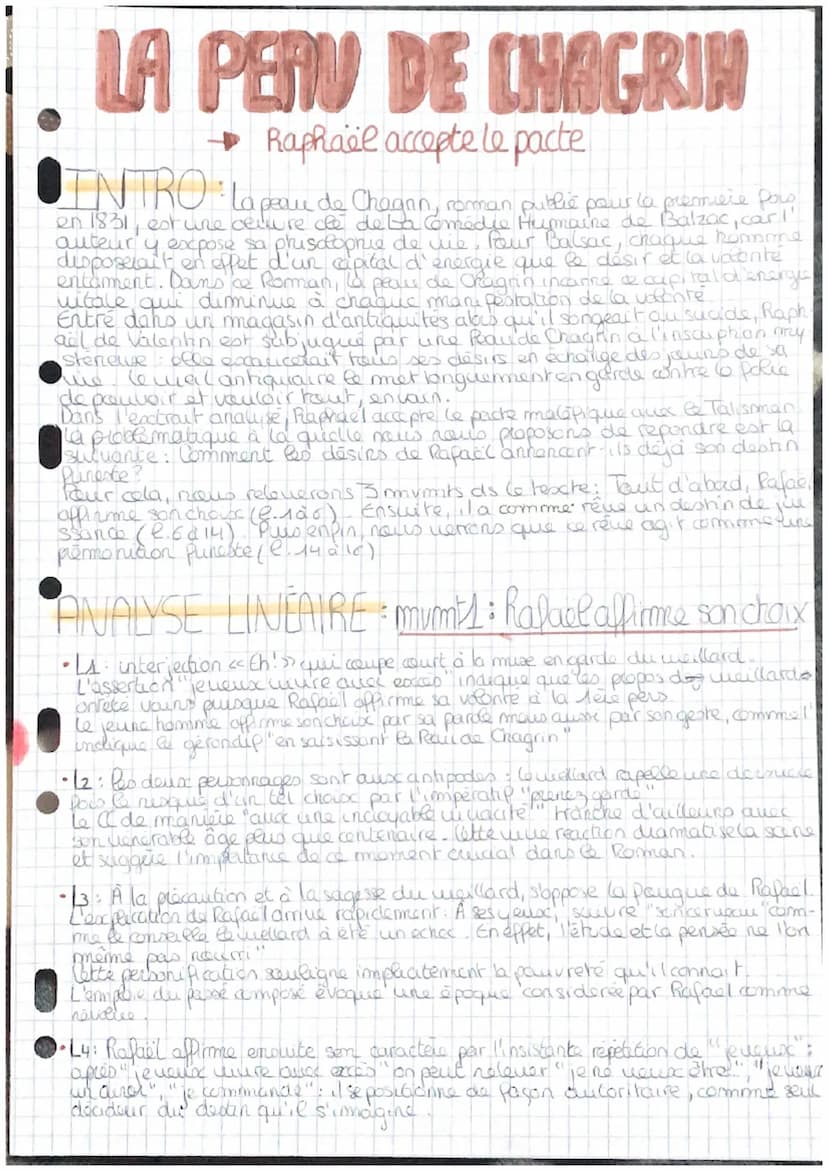 LA PEAU DE CHAGRIN
→ Raphaël accepte le pacte
INTRO : La peau de Chagrin, roman publié pour la première fois
en 1831, est une oeuvre clé de La Comédie Humaine de Balzac, car l'
auteur y expose sa philosophie de vie, Pour Balsac, chaque homme
disposerait en effet d'un capital d'énergie que le désir et la volonté
entament. Dans ce Roman, la peau de Chagrin incarne ce capital d'énergie
vitale qui diminue à chaque manifestation de la volonté.
Entré dans un magasin d'antiquités alors qu'il songeait au suicide, Raph-
aël de Valentin est subjugué par une Peau de Chagrin à l'inscription my-
stérieuse : elle exaucerait tous ses désirs en échange des jours de sa
vie. Le vieil antiquaire le met longuement en garde contre la folie
de pouvoir et vouloir tout, en vain.
Dans l'extrait analysé, Raphaël accepte le pacte maléfique avec le Talisman
La problématique à la quelle nous nous proposons de repondre est la
suivante : Comment les désirs de Rafaël annoncent-ils déjà son destin
funeste?
Pour cela, nous relèverons 3 mvmts ds le texte : Tout d'abord, Rafael
affirme son choix (l.1 à 6). Ensuite, il a comme rêve un destin de jui
ssance (l.6 à 14). Puis enfin, nous verrons que ce rêve agit comme une
prémonition funeste (l.14 à 16)
ANALYSE LINÉAIRE : mvmt 1 : Rafael affirme son choix
• L1 : interjection «Eh!» qui coupe court à la mise en garde du vieillard.
L'assertion "je veux vivre avec excès" indique que les propos du vieillard
ont été vains puisque Rafaël affirme sa volonté à la 1ère pers.
Le jeune homme affirme son choix par sa parole mais aussi par son geste, comme l'
indique le gérondif "en saisissant la Peau de Chagrin"
• L2 : les deux personnages sont aux antipodes : le vieillard rapelle une
fois le risque d'un tel choix par l'impératif "prenez garde"
Le CC de manière "avec une incroyable vivacité" tranche d'ailleurs avec
son vénérable âge plus que centenaire. Cette vive réaction dramatise la scène
et suggère l'importance de ce moment crucial dans le Roman.
• L3 : À la précaution et à la sagesse du vieillard, s'oppose la fougue de Rafaël
L'explication de Rafael arrive rapidement. À ses yeux, suivre com-
me le conseille le vieillard à été un echec. En effet, l'étude et la pensée ne l'on
même pas nourri"
Cette personnification souligne implicitement la pauvreté qu'il connait.
L'emploie du passé composé évoque une époque considerée par Rafael comme
révolue.
• L4 : Rafaël affirme ensuite son caractère par l'insistante répétition de "je veux" :
après "je veux vivre avec excès" on peut relever "je ne veux être", "je veux
un dîner", "je commande" : il se positionne de façon autoritaire, comme seul
décideur du destin qu'il s'imagine.